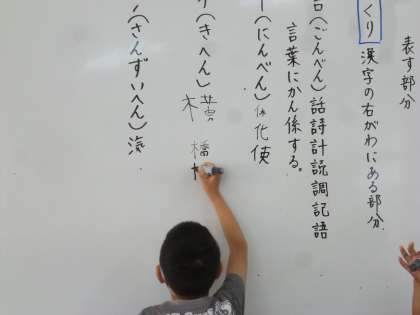 表す部分
くり 漢字の右がわにある部分
(ごんべん)話詩計読調記語
言葉にかん係する。
(にんべん)休化使
(きへん)横橋
(さんずいへん)